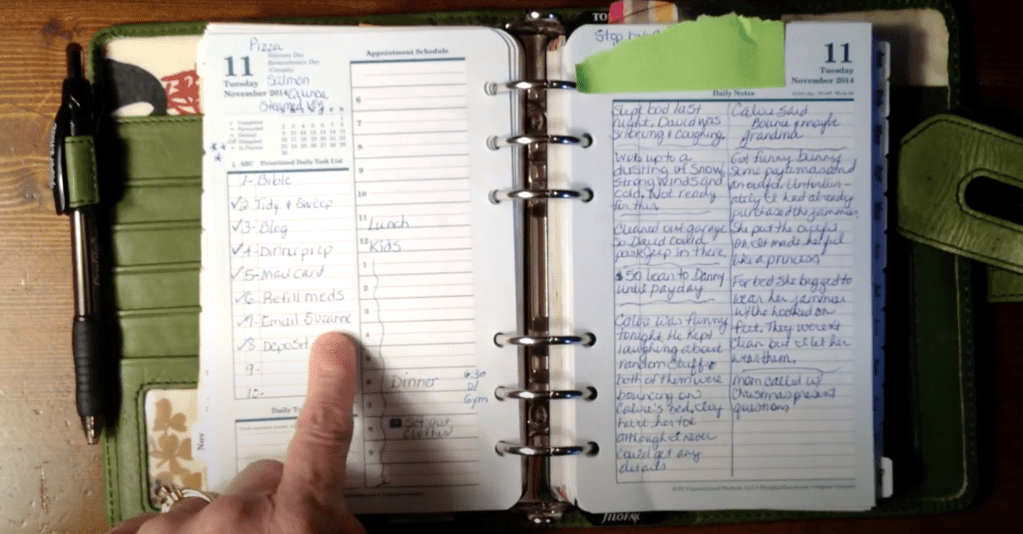 Pizza
11
Tuesday
November 2014
Veterans Day
Remembrance Day
(Canada)
Salmon
Quinoa
Steamed
Prioritized Daily Task List
ABC
1- Bible
✓2 Tidy & Sweep
✓3- Blog
✓4- Dinner prep
✓5- Mail card
✓6 Refill meds
✓7- Email Suzanne
✓8 Deposit
9-
10-
Appointment Schedule
6
7
8
9
10
11 Lunch
12 Kids
1
2
3
4
Dinner
6:30
D/
Gym
Set out
clothes
Nov
Stop
11
Tuesday
November 2014
Daily Notes
Slept bad last
night. David was
snoring & coughing.
Woke up to a
dusting of snow,
strong winds and
cold. Not ready
for this.
Cleaned out garage
so David could
park Jeep in there.
$50 loan to Danny
until payday
Calvie was funny
tonight. He kept
laughing about
random stuff &
both of them were
bouncing on
Calvie's bed,
hurt her toe
although I never
could get any
details
Calvie said
maybe
grandma
Got funny bunny
some pajamas and
an outfit. Unfortun-
ately I had already
purchased the jammies.
She put the outfit
on & it made her feel
like a princess
For bed she begged to
wear her jammies
w/the hooked on
feet. They weren't
clean but I let her
wear them.
Mom called w/
Christmas present
questions
FILOFAX